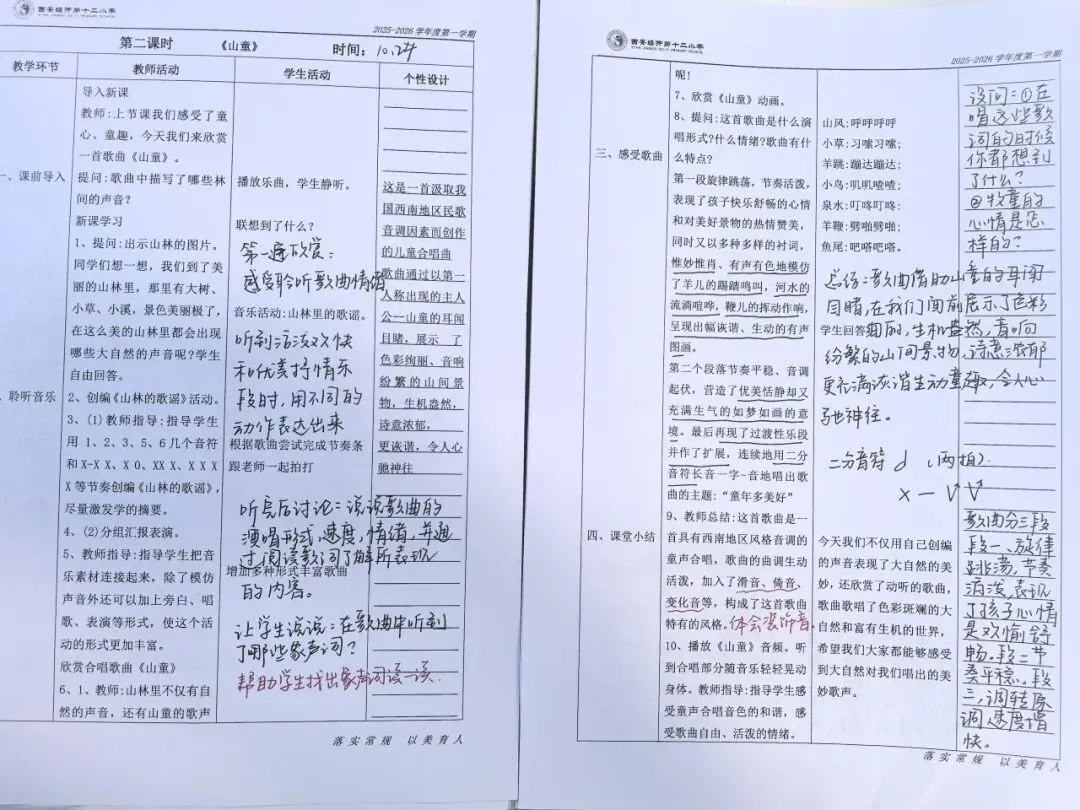 西安经开第十二小学
2025-2026 学年度第一学期
第二课时 《山童》 时间：10.24
教学环节 教师活动 学生活动 个性设计
一、课前导入
、聆听音乐
导入新课
教师：上节课我们感受了童
心、童趣，今天我们来欣赏
一首歌曲《山童》。
提问：歌曲中描写了哪些林
间的声音？
新课学习
1、提问：出示山林的图片。
同学们想一想，我们到了美
丽的山林里，那里有大树、
小草、小溪，景色美丽极了，
在这么美的山林里都会出现
哪些大自然的声音呢？学生
自由回答。
2、创编《山林的歌谣》活动。
3、(1)教师指导：指导学生
用 1、2、3、5、6 几个音符
和 X-X X、X 0、XX X、X X X
X 等节奏创编《山林的歌谣》，
尽量激发学的摘要。
4、(2)分组汇报表演。
5、教师指导：指导学生把音
乐素材连接起来，除了模仿
声音外还可以加上旁白、唱
歌、表演等形式，使这个活
动的形式更加丰富。
欣赏合唱歌曲《山童》
6、1、教师：山林里不仅有自
然的声音，还有山童的歌声
播放乐曲，学生静听。
联想到了什么？
第一遍欣赏：
感受聆听歌曲情绪
音乐活动：山林里的歌谣。
听到活泼欢快
和优美抒情乐
段时，用不同的
动作表达出来
根据歌曲尝试完成节奏条
跟老师一起拍打
听完后讨论：说说歌曲的
演唱形式，速度，情绪，并通
过阅读歌词了解所表现
增加多种形式丰富歌曲
的内容。
让学生说说：在歌曲中听到
了哪些象声词？
帮助学生找出象声词读一读.
这是一首汲取我
国西南地区民歌
音调因素而创作
的儿童合唱曲
歌曲通过以第一
人称出现的主人
公—山童的耳闻
目睹，展示 了
色彩绚丽、音响
纷繁的山间景
物，生机盎然，
诗意浓郁，
更诙谐，令人心
驰神往
落实常规 以美育人
西安经开第十二小学
2025-2026 学年度第一学期
三、感受歌曲
四、课堂小结
呢！
7、欣赏《山童》动画。
8、提问：这首歌曲是什么演
唱形式？什么情绪？歌曲有什
么特点？
第一段旋律跳荡，节奏活泼，
表现了孩子快乐舒畅的心情
和对美好景物的热情赞美，
同时又以多种多样的衬词，
惟妙惟肖、有声有色地模仿
了羊儿的踢踏鸣叫，河水的
流淌喧哗，鞭儿的挥动作响，
呈现出幅诙谐、生动的有声
图画。
第二个段落节奏平稳、音调
起伏，营造了优美恬静却又
充满生气的如梦如画的意
境。最后再现了过渡性乐段
并作了扩展，连续地用二分
音符长音一字-音地唱出歌
曲的主题：“童年多美好”
9、教师总结：这首歌曲是一
首具有西南地区风格音调的
童声合唱，歌曲的曲调生动
活泼，加入了滑音、倚音、
变化音等，构成了这首歌曲
特有的风格。体会装饰音.
10、播放《山童》音频。听
到合唱部分随音乐轻轻晃动
身体。教师指导：指导学生感
受童声合唱音色的和谐，感
受歌曲自由、活泼的情绪。
山风：呼呼呼呼
小草：习嗦习嗦；
羊跳：蹦达蹦达；
小鸟：叽叽喳喳；
泉水：叮咚叮咚；
羊鞭：劈啪劈啪；
鱼尾：吧嗒吧嗒。
总结：歌曲借助山童的耳闻
目睹，在我们面前展示了色彩
学生回答
绚丽，生机盎然，音响
纷繁的山间景物，诗意浓郁
更充满诙谐生动童趣，令人心
驰神往。
二分音符 d （两拍）.
X — V V
今天我们不仅用自己创编
的声音表现了大自然的美
妙，还欣赏了动听的歌曲，
歌曲歌唱了色彩斑斓的大
自然和富有生机的世界，
希望我们大家都能够感受
到大自然对我们唱出的美
妙歌声。
设问：①在
唱这些歌
词的时候
你都想到
了什么？
②牧童的
心情是怎
样的？
歌曲分三段
段一、旋律
跳荡，节奏
活泼，表现
了孩子心情
是欢愉舒
畅。段二节
奏平稳。段
三，调转原
调 速度增
快。
落实常规 以美育人